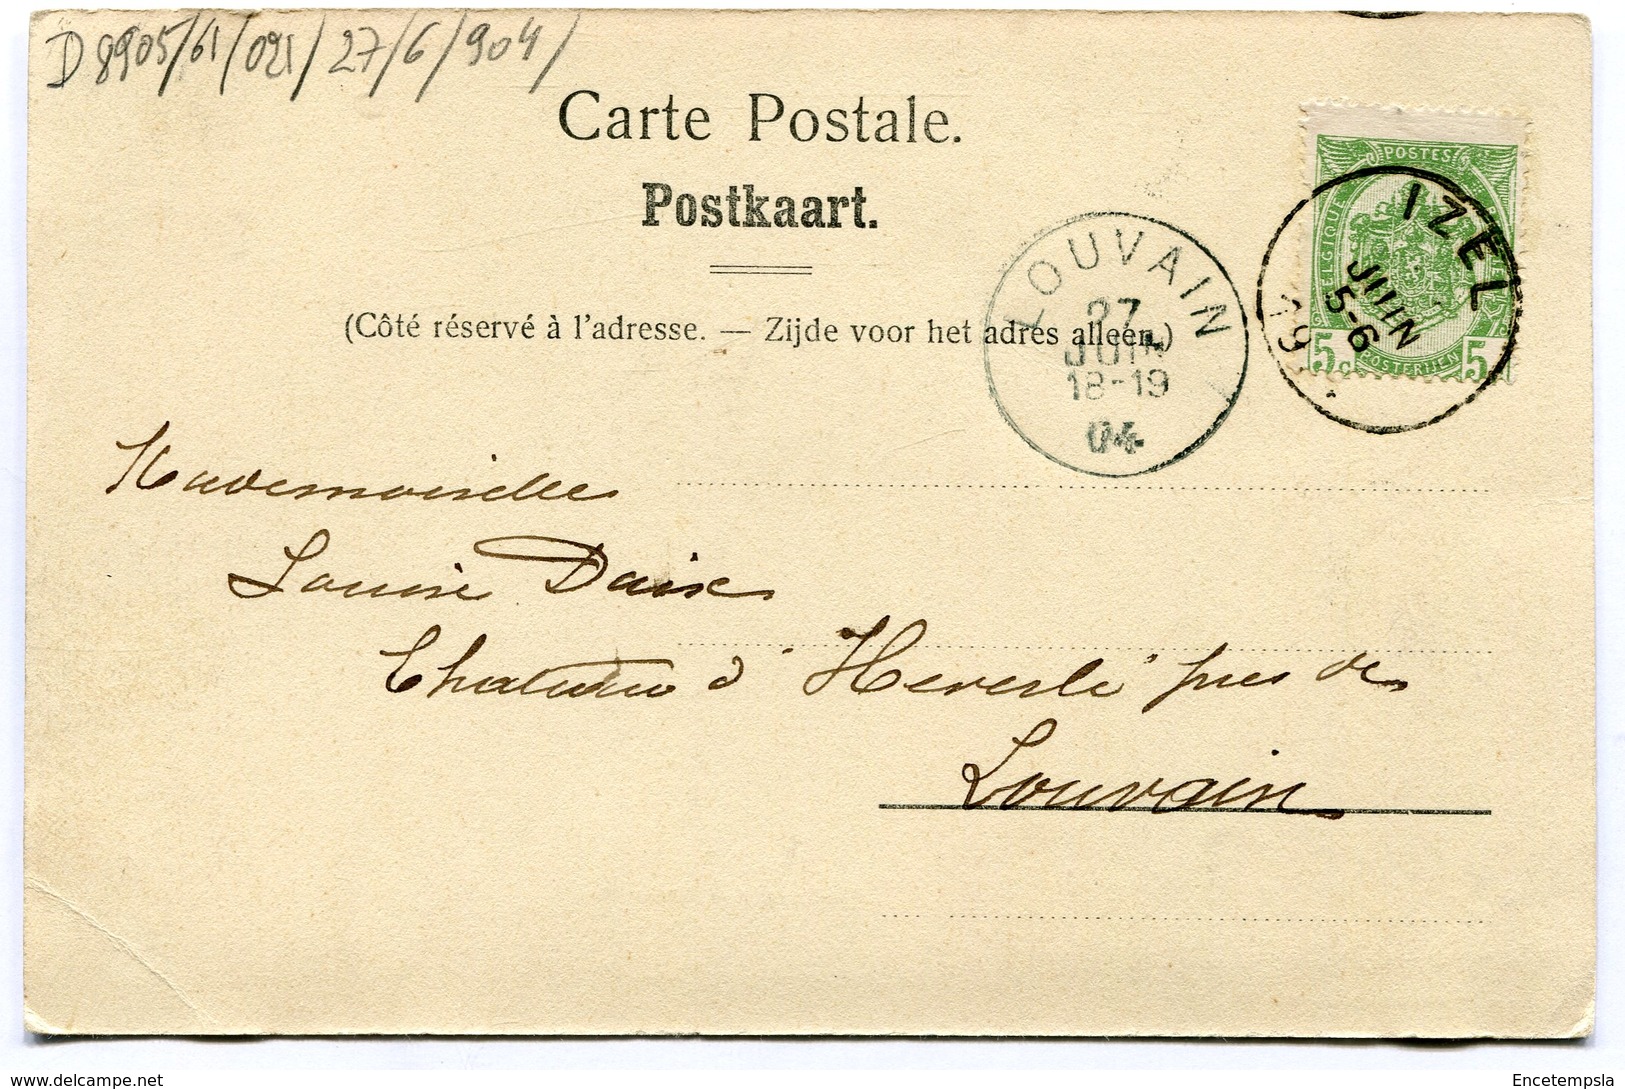 D 8905/61/021/27/6/904/
Carte Postale.
Postkaart.
(Côté réservé à l'adresse. — Zijde voor het adres alleen.)
LOUVAIN
27
JUIN
18-19
04
IZEL
JUIN
5-6
19
POSTES
BELGIQUE
5c
POSTERIJEN
5
Mademoiselle
Louise Daix
Chateau d'Heverlé près de
Louvain
www.delcampe.net
Encetempsla